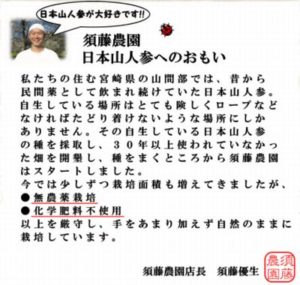 日本山人参が大好きです!!
須藤農園
日本山人参へのおもい
私たちの住む宮崎県の山間部では、昔から
民間薬として飲まれ続けていた日本山人参。
自生している場所はとても険しくロープなど
なければたどり着けないような場所にしか
ありません。その自生している日本山人参
の種を採取し、30年以上使われていなかっ
た畑を開墾し、種をまくところから須藤農園
はスタートしました。
今では少しずつ栽培面積も増えてきましたが、
●無農薬栽培
●化学肥料不使用
以上を厳守し、手をあまり加えず自然のままに
栽培しています。
須藤農園店長 須藤優生
須藤農園